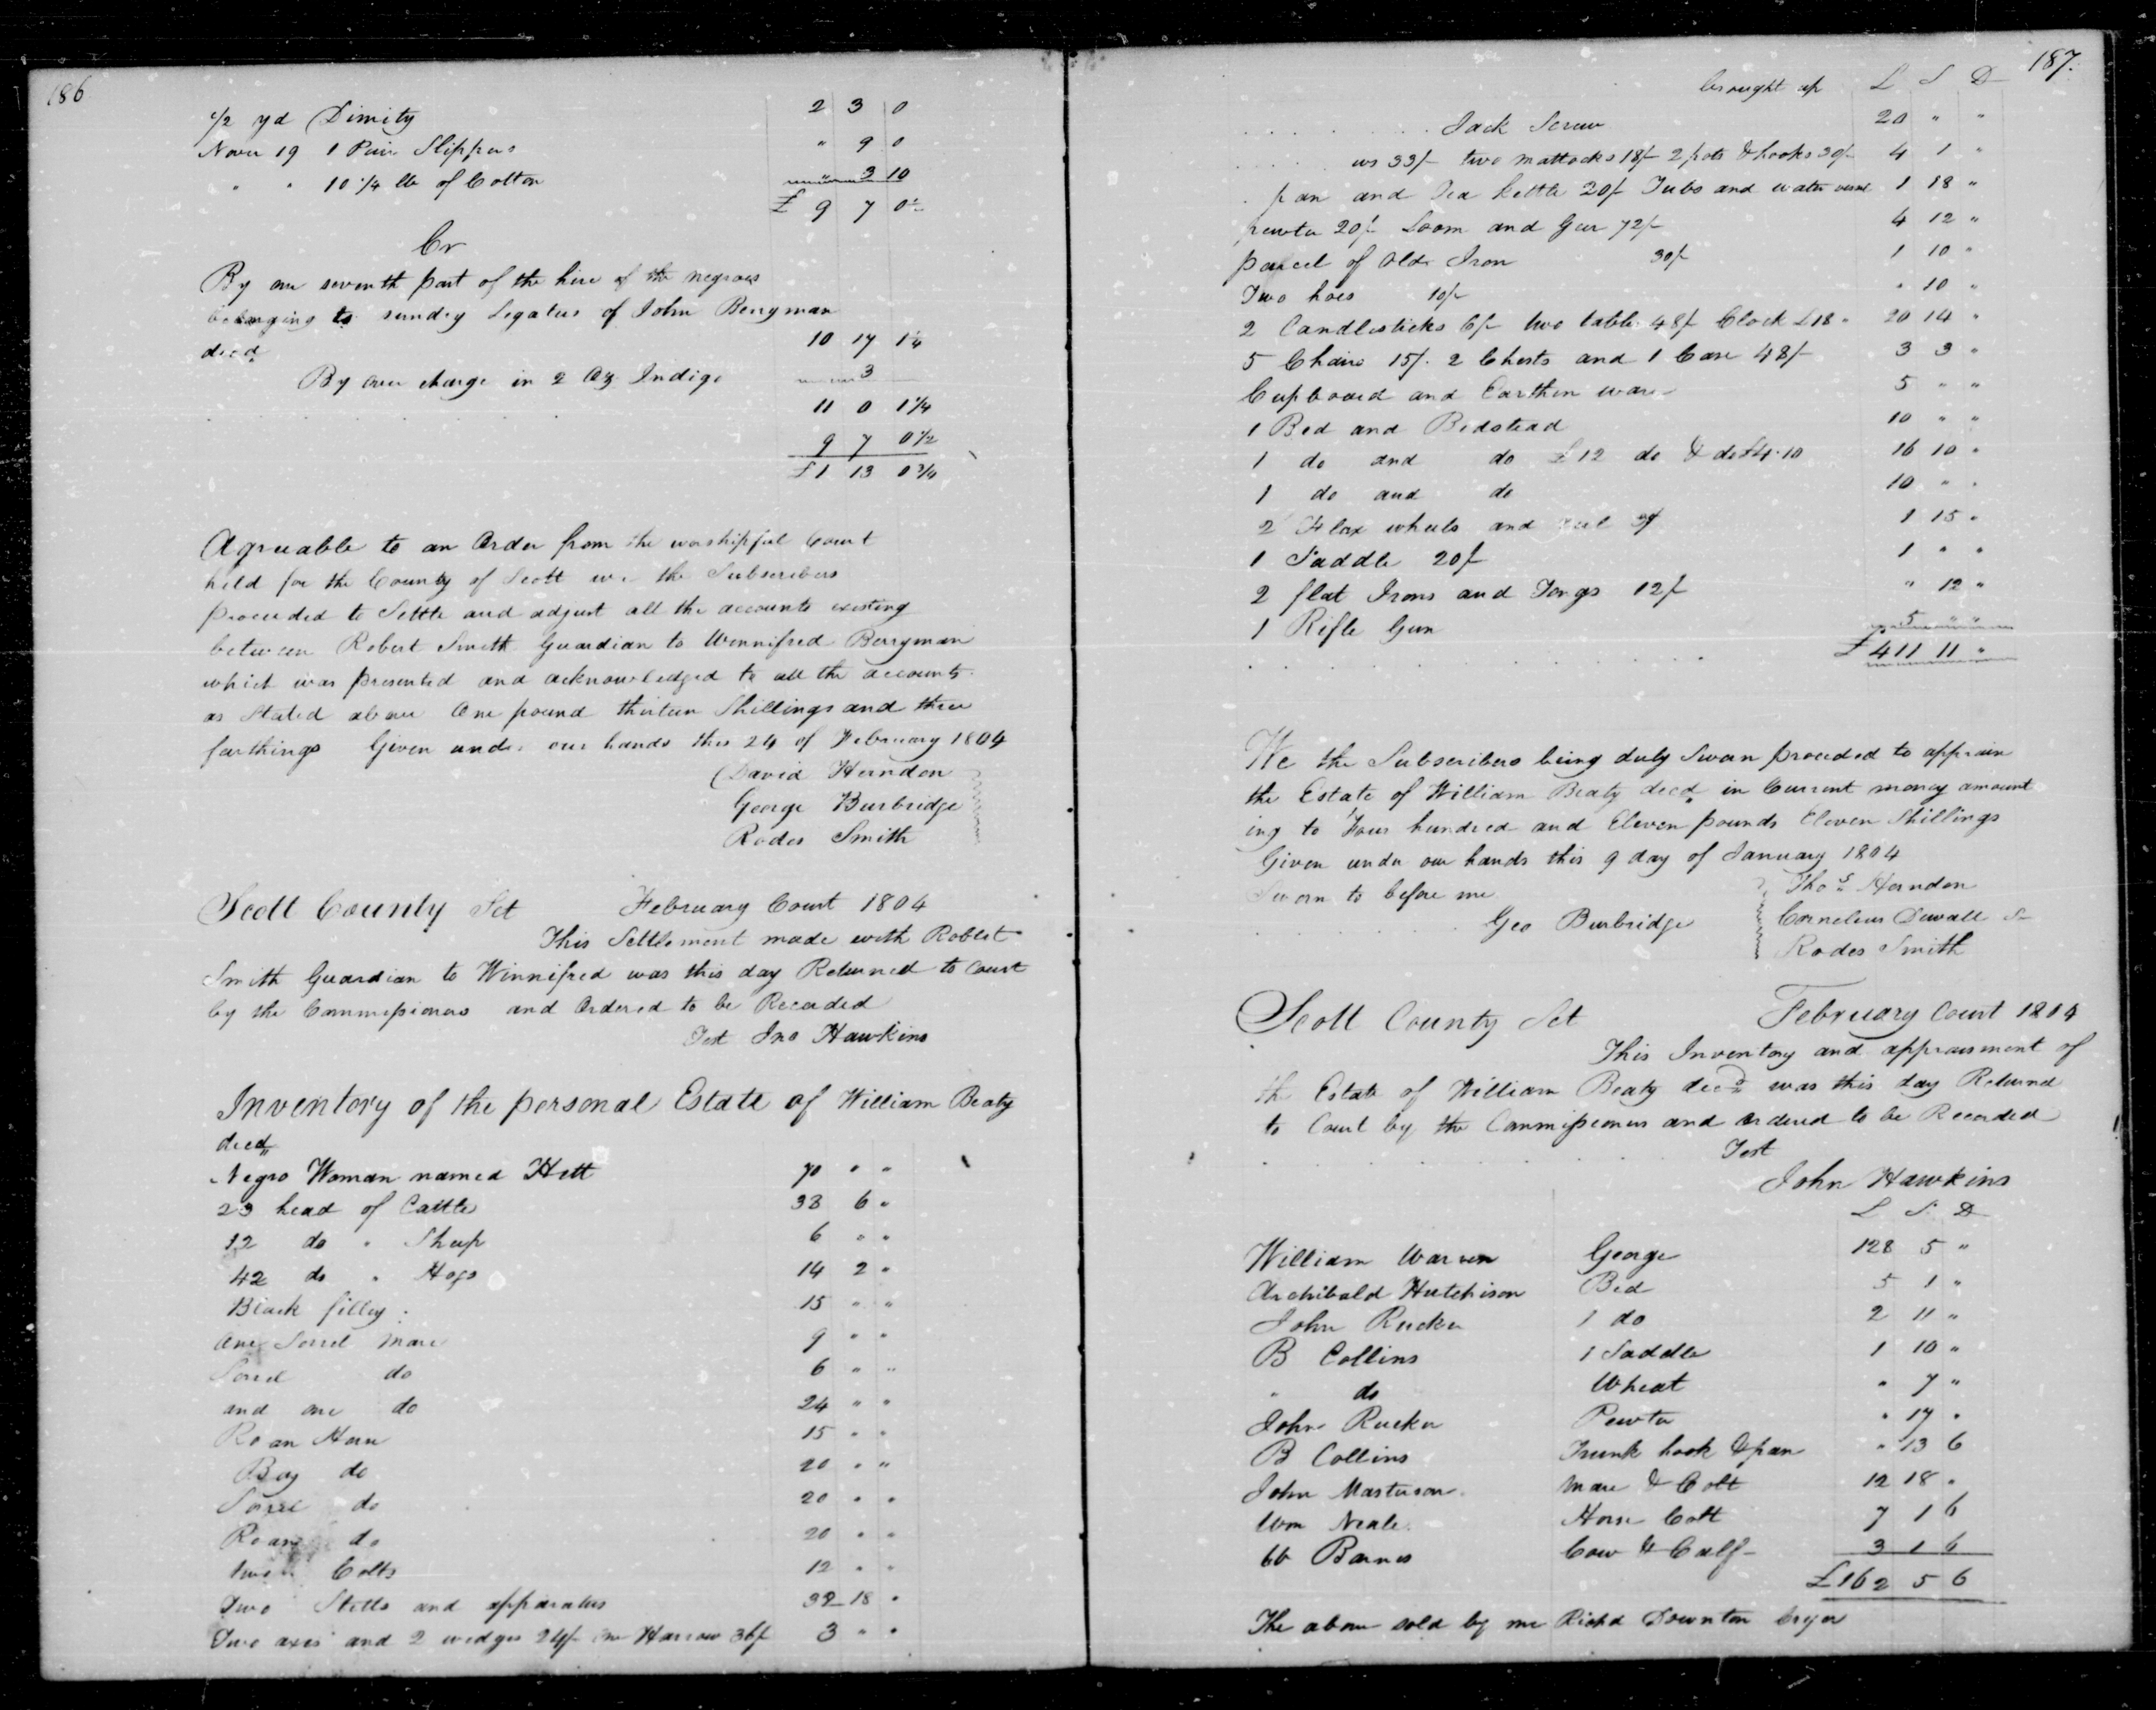 186
1/2 yd Dimity 2 3 0
Novr 19 1 Pair Slippers " 9 0
" " 10 1/4 lb of Cotton " 3 10
£ 9 7 0 1/2
Cr
By one seventh part of the hire of the negroes
belonging to sundry Legatees of John Berryman
decd 10 17 1 1/4
By over charge in 2 oz Indigo 3
11 0 1 1/4
9 7 0 1/2
£1 13 0 3/4
Agreeable to an Order from the worshipful Court
held for the County of Scott we the Subscribers
proceeded to Settle and adjust all the accounts existing
between Robert Smith Guardian to Winnifred Berryman
which was presented and acknowledged to all the accounts
as Stated above One pound thirteen Shillings and three
farthings Given under our hands this 24 of February 1804
David Herndon
George Burbridge
Rodes Smith
Scott County Sct February Court 1804
This Settlement made with Robert
Smith Guardian to Winnifred was this day Returned to Court
by the Commissioners and Ordered to be Recorded
Test Jno Hawkins
Inventory of the personal Estate of William Beaty
decd
Negro Woman named Hett 70 " "
23 head of Cattle 38 6 "
12 do " Sheep 6 " "
42 do " Hogs 14 2 "
Black filley 15 " "
One Sorrel Mare 9 " "
Sorrel do 6 " "
and one do 24 " "
Roan Horse 15 " "
Bay do 20 " "
Sorrel do 20 " "
Roan do 20 " "
two Colts 12 " "
Two Stills and apparatus 32 18 "
Two axes and 2 wedges 24/- one Harrow 36/ 3 " "
187.
brought up L S D
Jack Screw 20 " "
ws 33/- two mattocks 18/- 2 pots & hooks 30/- 4 1 "
pan and Tea kettle 20/- Tubs and water vessel 1 18 "
pewter 20/- Loom and Gear 72/- 4 12 "
parcel of Old Iron 30/- 1 10 "
Two hoes 10/- " 10 "
2 Candlesticks 6/- two tables 48/- Clock £18 " 20 14 "
5 Chairs 15/. 2 Chests and 1 Case 48/- 3 3 "
Cupboard and Earthen ware 5 " "
1 Bed and Bedstead 10 " "
1 do and do £12 do & do £4.10 16 10 "
1 do and do 10 " "
2 Flax wheels and reel 1 15 "
1 Saddle 20/- 1 " "
2 flat Irons and Tongs 12/- " 12 "
1 Rifle Gun 5 " "
£ 411 11 "
We the Subscribers being duly Sworn proceeded to appraise
the Estate of William Beaty decd in Current money amount
ing to Four hundred and Eleven pounds Eleven Shillings
Given under our hands this 9 day of January 1804
Sworn to before me Thos Herndon
Geo Burbridge Cornelius Duvall Sr
Rodes Smith
Scott County Sct February Court 1804
This Inventory and appraisment of
the Estate of William Beaty decd was this day Returnd
to Court by the Commissioners and ordered to be Recorded
Test
John Hawkins
L S D
William Warren George 128 5 "
Archibald Hutchison Bed 5 1 "
John Rucker 1 do 2 11 "
B Collins 1 Saddle 1 10 "
" do Wheat " 7 "
John Rucker Pewter " 17 "
B Collins Trunk hook & pan " 13 6
John Masterson Mare & Colt 12 18 "
Wm Neale Horse Colt 7 1 6
Barnes Cow & Calf 3 1 6
£162 5 6
The above sold by me Richd Downton Cryer